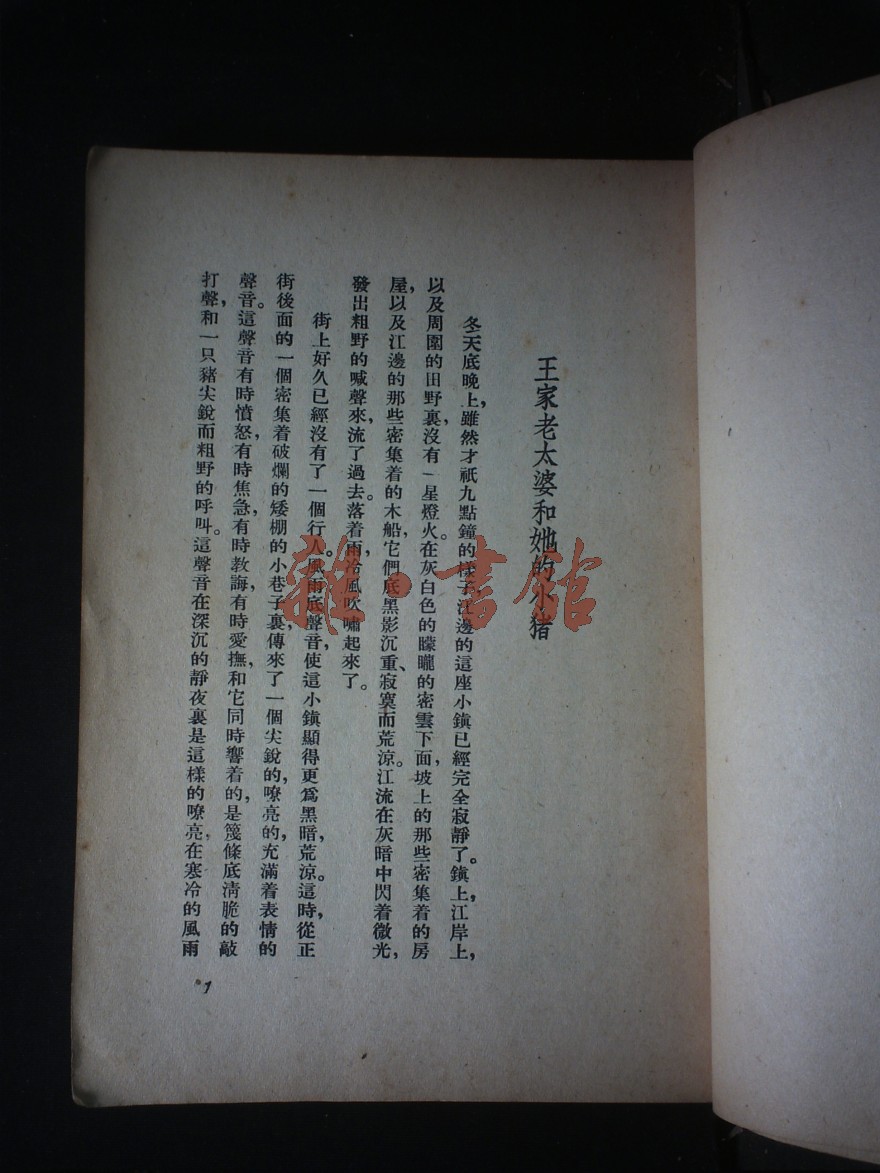 王家老太婆和她的小猪
冬天底晚上，雖然才祇九點鐘的樣子，江邊的這座小鎮已經完全寂靜了。鎮上，江岸上，
以及周圍的田野裏，沒有一星燈火。在灰白色的矇矓的密雲下面，坡上的那些密集着的房
屋，以及江邊的那些密集着的木船，它們底黑影沉重、寂寞而荒涼。江流在灰暗中閃着微光，
發出粗野的喊聲來，流了過去。落着雨，冷風吹嘯起來了。
街上好久已經沒有了一個行人。風雨底聲音，使這小鎮顯得更爲黑暗，荒涼。這時，從正
街後面的一個密集着破爛的矮棚的小巷子裏，傳來了一個尖銳的，嘹亮的，充滿着表情的
聲音。這聲音有時憤怒，有時焦急，有時教誨，有時愛撫，和它同時響着的，是篾條底清脆的敲
打聲，和一只豬尖銳而粗野的呼叫。這聲音在深沉的靜夜裏是這樣的嘹亮，在寒冷的風雨
1
雜·書館